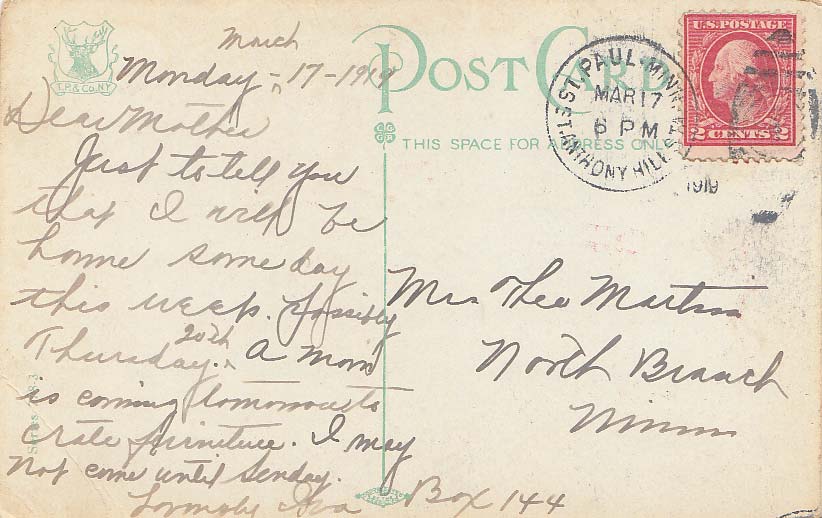 T.P. & Co. N.Y.
POST CARD
THIS SPACE FOR ADDRESS ONLY
U.S. POSTAGE
2 CENTS 2
ST. PAUL, MINN.
MAR 17
6 PM
1919
ST. ANTHONY HILL STA.
March
Monday - 17 - 1919
Dear Mother
Just to tell you
that I will be
home some day
this week. Possibly
Thursday 20th. A man
is coming tomorrow to
crate furniture. I may
not come until Sunday.
Mrs Theo Martson
North Branch
Minn
Box 144